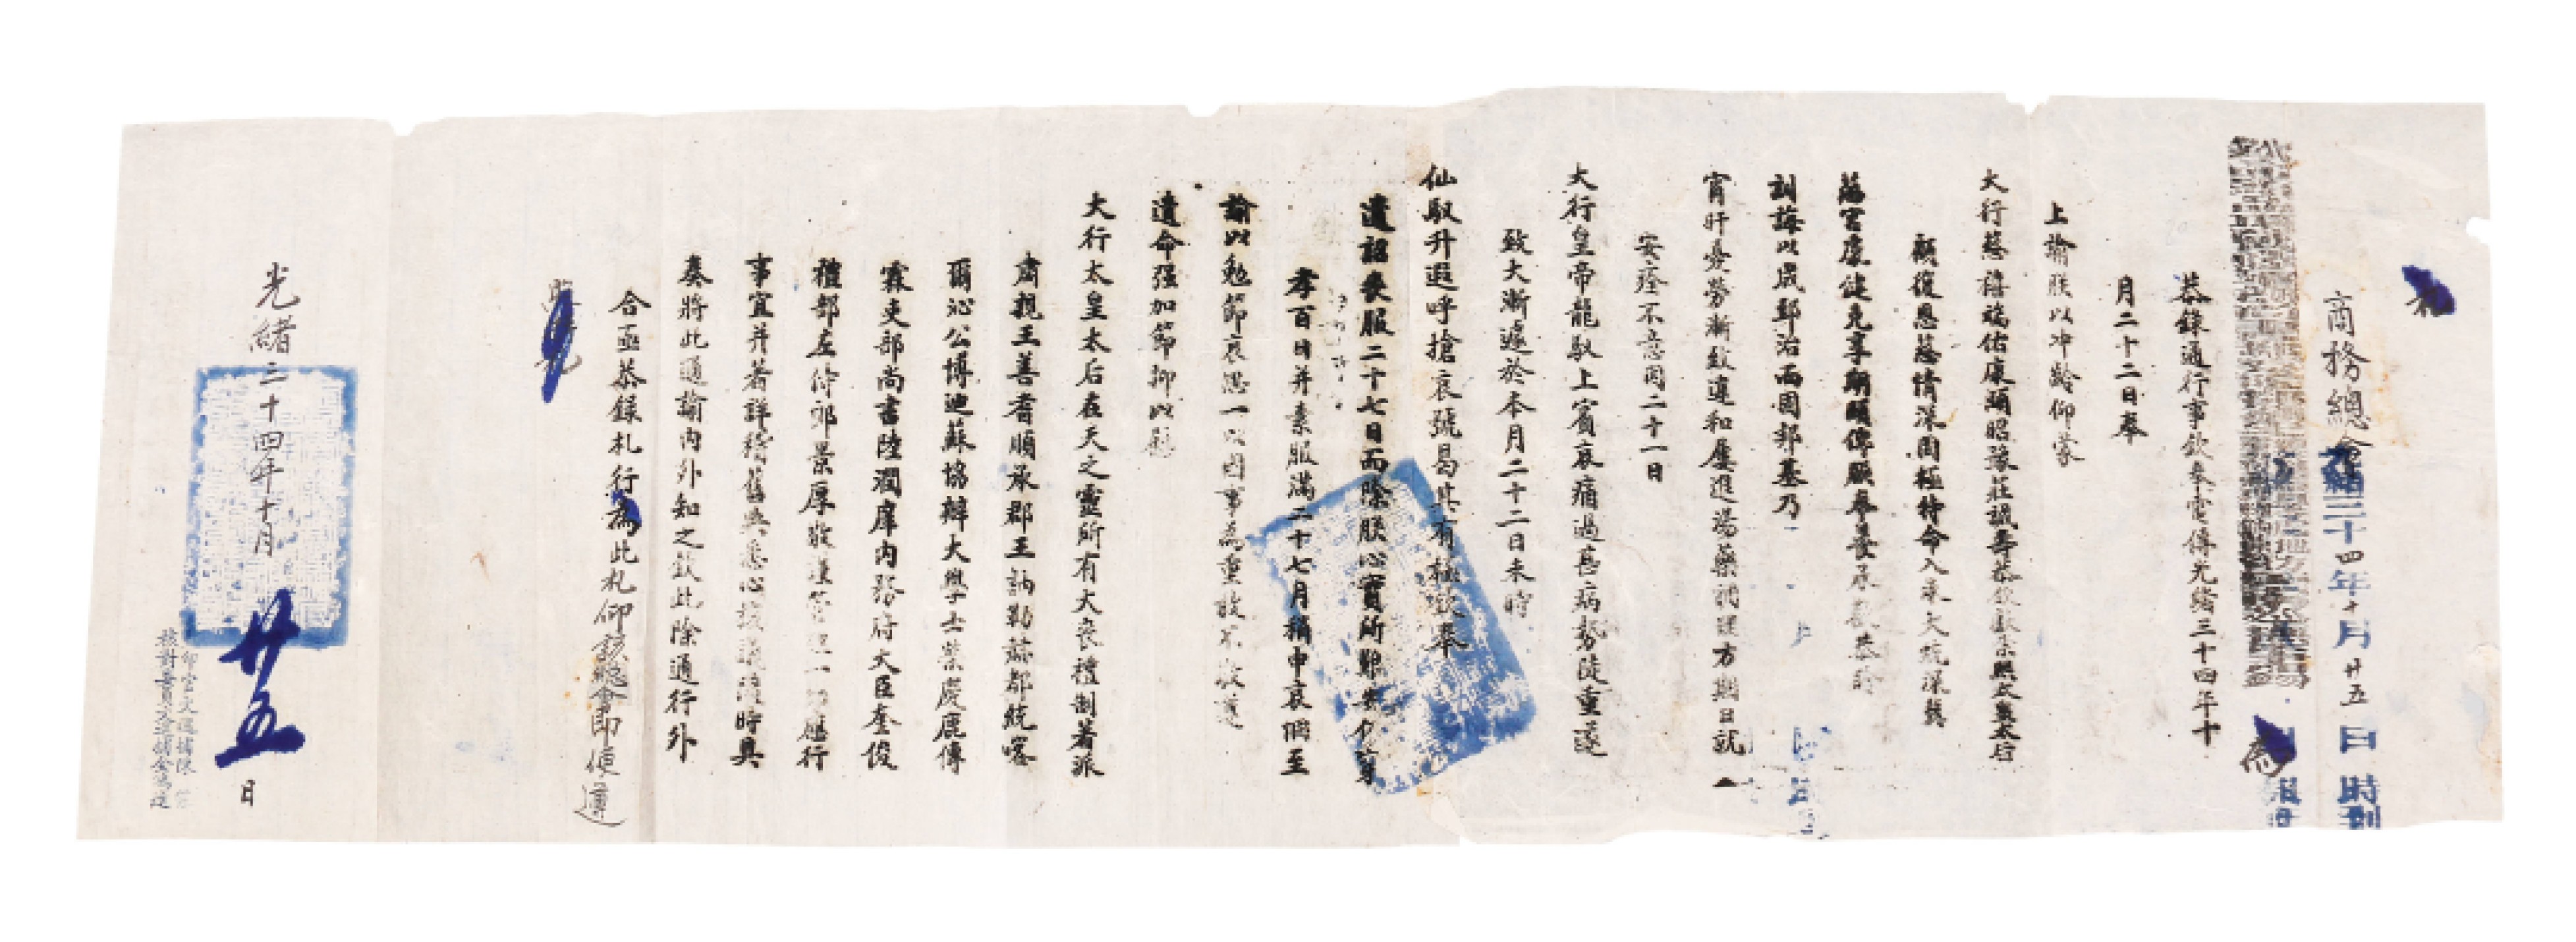 札
商務總會
光緒三十四年十月廿五日 時到
為
恭錄通行事欽奉電傳光緒三十四年十
月二十二日奉
上諭朕以冲齡仰蒙
大行慈禧端佑康頤昭豫莊誠壽恭欽獻崇熙太皇太后
顧復恩慈情深罔極特命入承大統深冀
慈宮康健克享期頤俾朕奉養承歡恭聆
訓誨以成郅治而固邦基乃
宵旰憂勞漸致違和屢進湯藥調理方期日就
安痊不意因二十一日
大行皇帝龍馭上賓哀痛過甚病勢陡重遂
致大漸遽於本月二十二日未時
仙馭升遐呼搶哀號曷其有極欽奉
遺詔喪服二十七日而除朕心實所難安仍
孝百日并素服滿二十七月稍申哀悃至
諭以勉節哀思一以國事為重敢不敬遵
遺命強加節抑以慰
大行太皇太后在天之靈所有大喪禮制著派
肅親王善耆順承郡王訥勒赫都統喀
爾沁公博迪蘇協辦大學士榮慶鹿傳
霖吏部尚書陸潤庠內務府大臣奎俊
禮部左侍郎景厚敬謹管理一切應行
事宜并著詳稽舊典悉心核議隨時具
奏將此通諭內外知之欽此除通行外
合亟恭錄札行為此札仰該總會即便遵
照
光緒三十四年十月
廿五
日